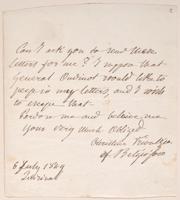 Can I ask you to send these
letters for me? I suppose that
General Oudinot would like to
peep in my letters, and I wish
to escape that—
Pardon me and believe me
Yours very much obliged
Christine Trivulzio
of Belgiojoso
6 July 1849
Quirinal